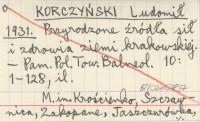 KORCZYŃSKI Ludomił
1931. Przyrodzone źródła sił
i zdrowia ziemi krakowskiej.
- Pam. Pol. Tow. Balneol. 10:
1-128, il.
M. in. Krościenko, Szczaw-
nica, Zakopane, Jaszczurówka,